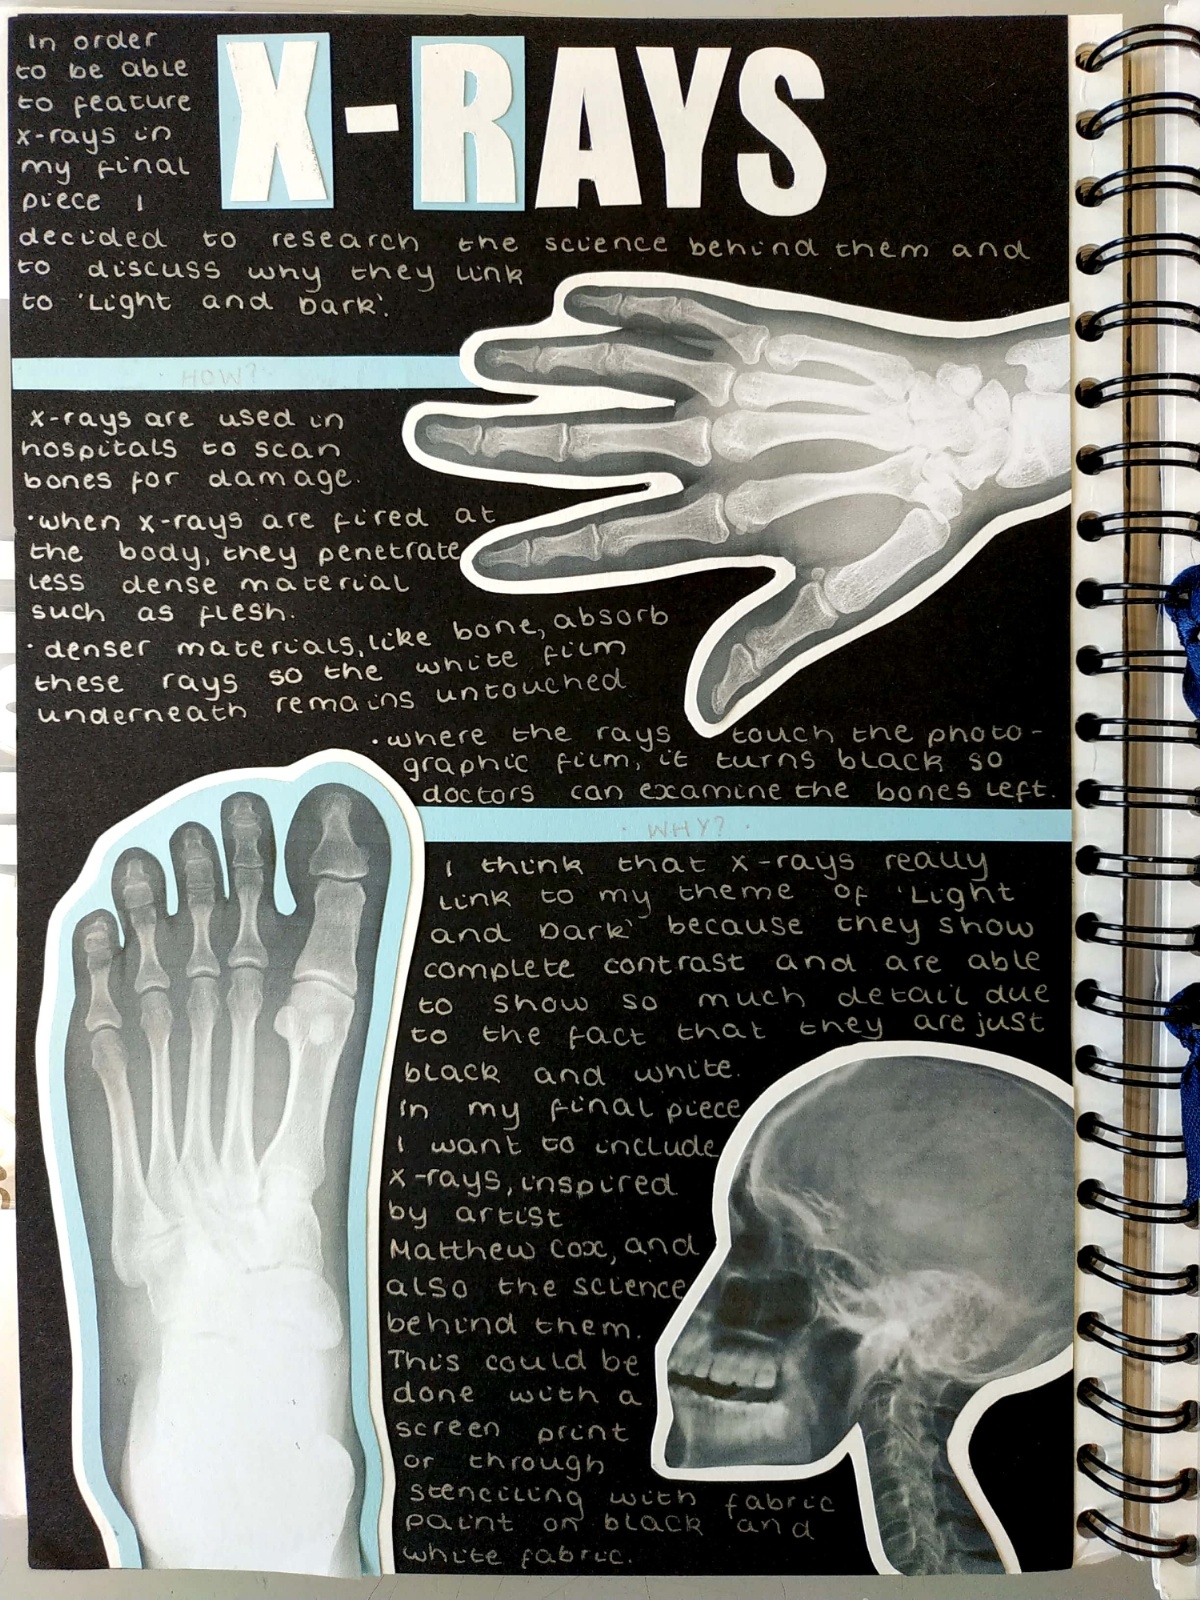 X-RAYS
In order
to be able
to feature
x-rays in
my final
piece I
decided to research the science behind them and
to discuss why they link
to 'Light and Dark'.
HOW?
X-rays are used in
hospitals to scan
bones for damage.
·when x-rays are fired at
the body, they penetrate
less dense material
such as flesh.
· denser materials, like bone, absorb
these rays so the white film
underneath remains untouched
·where the rays touch the photo-
graphic film, it turns black so
doctors can examine the bones left.
· WHY? ·
I think that X-rays really
link to my theme of 'Light
and Dark' because they show
complete contrast and are able
to show so much detail due
to the fact that they are just
black and white.
In my final piece
I want to include
X-rays, inspired
by artist
Matthew Cox, and
also the science
behind them.
This could be
done with a
screen print
or through
stenciling with fabric
paint on black and
white fabric.